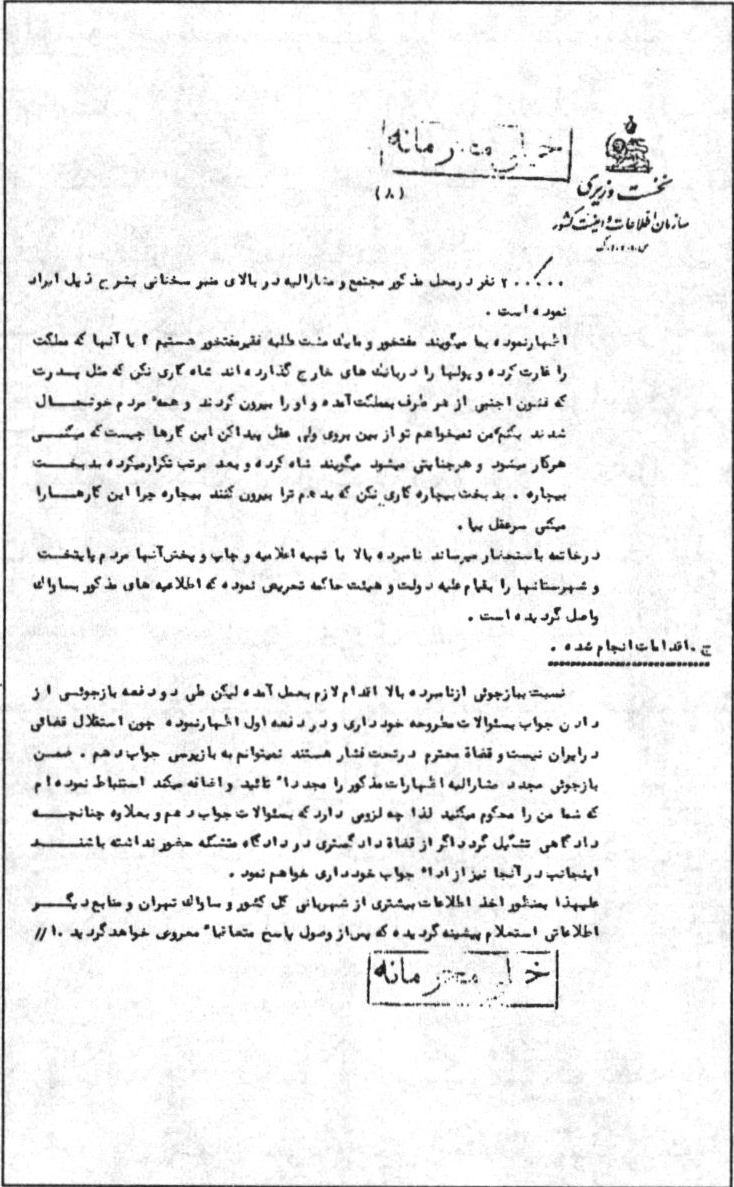 خیلی محرمانه
(۸)
نخست وزیری
سازمان اطلاعات و امنیت کشور
۲۰۰۰۰۰ نفر در محل مذکور مجتمع و مشارالیه در بالای منبر سخنانی بشرح ذیل ایراد
نموده است .
اظهارنموده بما میگویند مفتخور و مایک مشت طلبه فقیرمفتخور هستیم ؟ یا آنها که مملکت
را غارت کرده و پولها را در بانک های خارج گذارده اند شاه کاری نکن که مثل پدرت
که قشون اجنبی از هر طرف بمملکت آمده و او را بیرون کردند و همهٔ مردم خوشحال
شدند بکنم من نمیخواهم تو از بین بروی ولی عقل پیدا کن این کارها چیست که میکنی
هرکار میشود و هرجنایتی میشود میگویند شاه کرده و بعد مرتب تکرارمیکرده بدبخت
بیچاره . بدبخت بیچاره کاری نکن که بدهم ترا بیرون کنند بیچاره چرا این کارها را
میکنی سرعقل بیا .
درخاتمه باستحضار میرساند نامبرده بالا با تهیه اعلامیه و چاپ و پخش آنها مردم پایتخت
و شهرستانها را بقیام علیه دولت و هیئت حاکمه تحریص نموده که اطلاعیه های مذکور بساواک
واصل گردیده است .
ج . اقدامات انجام شده .
نسبت ببازجوئی ازنامبرده بالا اقدام لازم بعمل آمده لیکن طی دو دفعه بازجوئی از
دادن جواب بسئوالات مطروحه خودداری و در دفعه اول اظهارنموده چون استقلال قضائی
درایران نیست و قضاة محترم درتحت فشار هستند نمیتوانم به بازپرسی جواب دهم . ضمن
بازجوئی مجدد مشارالیه اظهارات مذکور را مجدداً تائید و اضافه میکند استنباط نموده ام
که شما من را محکوم میکنید لذا چه لزومی دارد که بسئوالات جواب دهم و بعلاوه چنانچه
دادگاهی تشکیل گردد اگر از قضاة دادگستری در دادگاه متشکله حضور نداشته باشند
اینجانب در آنجا نیز از اداء جواب خودداری خواهم نمود .
علیهذا بمنظور اخذ اطلاعات بیشتری از شهربانی کل کشور و ساواک تهران و منابع دیگر
اطلاعاتی استعلام پیشینه گردیده که پس از وصول پاسخ متعاقباً معروض خواهد گردید .۱//
خیلی محرمانه